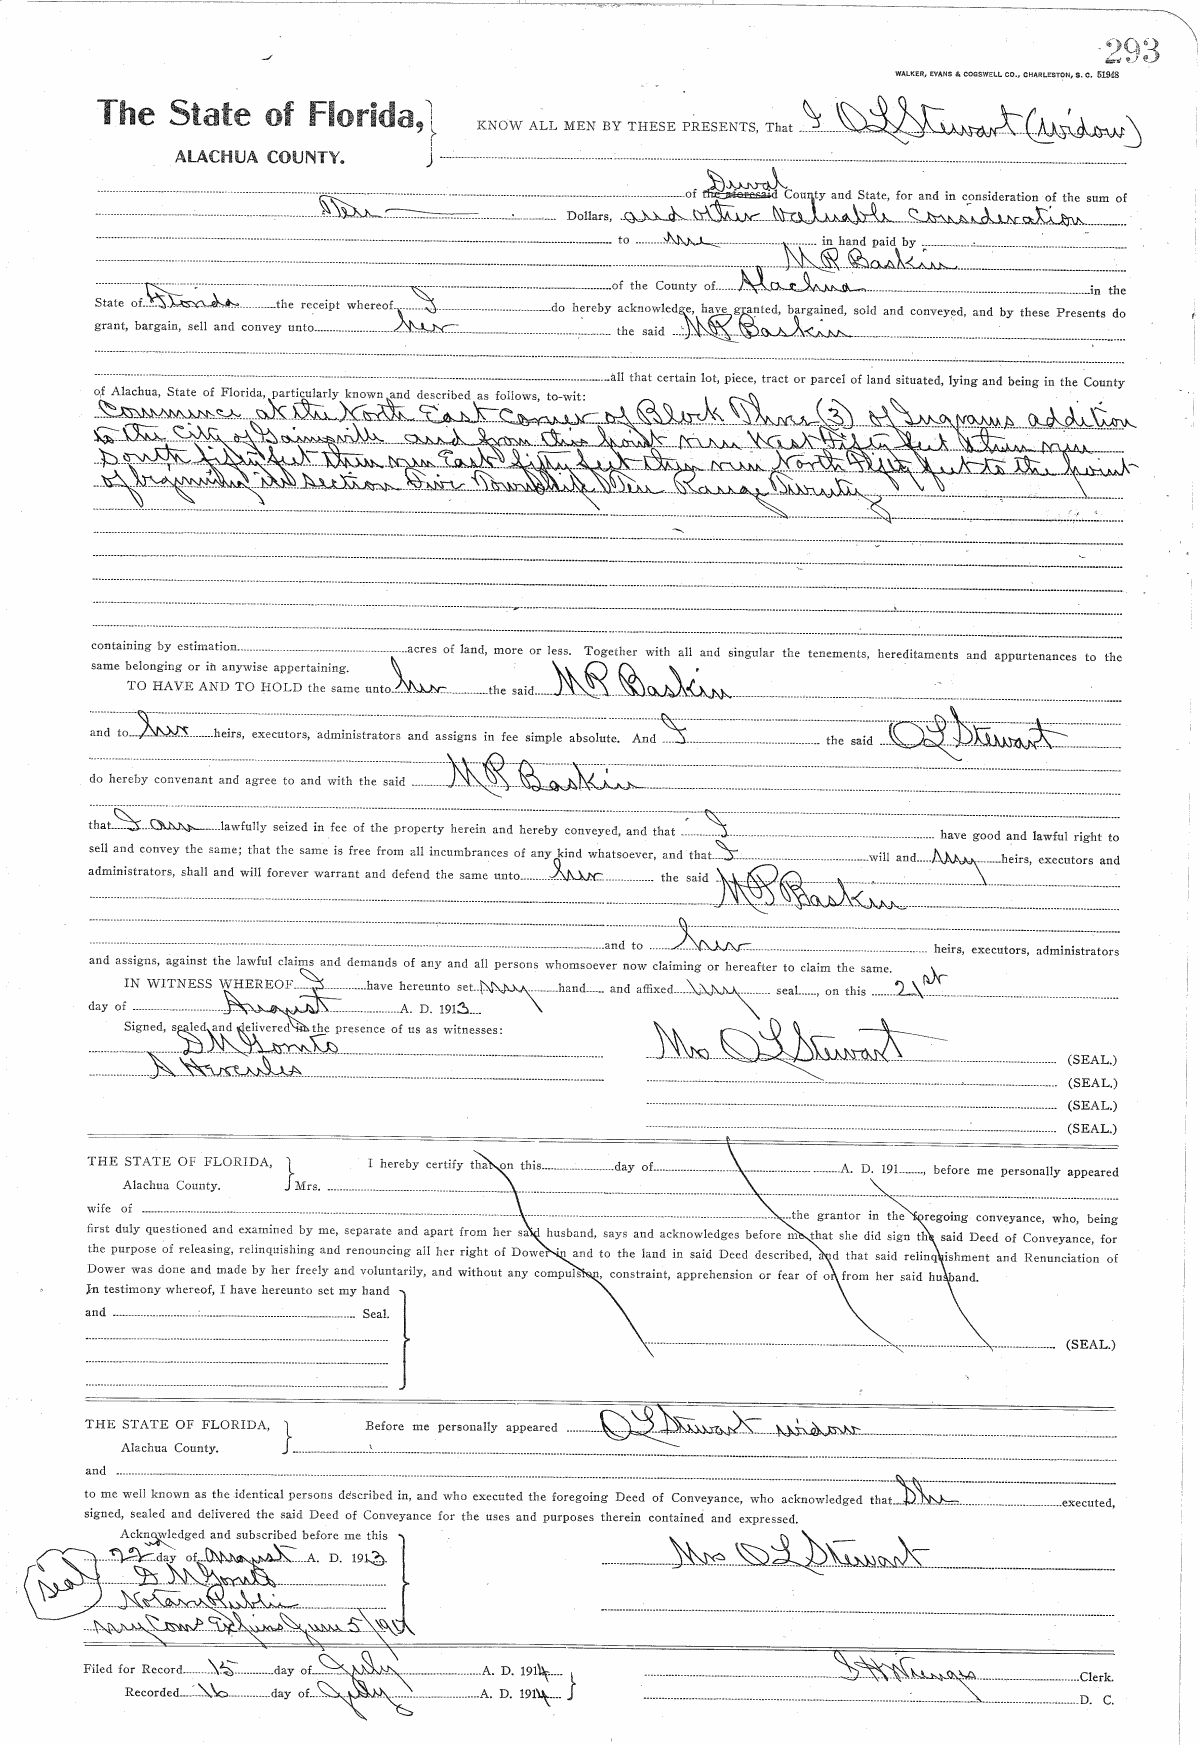 293
WALKER, EVANS & COGSWELL CO., CHARLESTON, S. C. 51948
The State of Florida,
ALACHUA COUNTY.
KNOW ALL MEN BY THESE PRESENTS, That I O L Stewart (Widow)
Duval
of the aforesaid County and State, for and in consideration of the sum of
Ten Dollars, and other valuable consideration
to me in hand paid by
M R Baskin
of the County of Alachua in the
State of Florida the receipt whereof I do hereby acknowledge, have granted, bargained, sold and conveyed, and by these Presents do
grant, bargain, sell and convey unto her the said M R Baskin
all that certain lot, piece, tract or parcel of land situated, lying and being in the County
of Alachua, State of Florida, particularly known and described as follows, to-wit:
Commence at the North East Corner of Block Three (3) of Ingrams addition
to the City of Gainesville and from this point run West Fifty feet then run
South fifty feet then run East fifty feet then run North Fifty feet to the point
of beginning in section Five Township Ten Range Twenty
containing by estimation acres of land, more or less. Together with all and singular the tenements, hereditaments and appurtenances to the
same belonging or in anywise appertaining.
TO HAVE AND TO HOLD the same unto her the said M R Baskin
and to her heirs, executors, administrators and assigns in fee simple absolute. And I the said O L Stewart
do hereby convenant and agree to and with the said M R Baskin
that I am lawfully seized in fee of the property herein and hereby conveyed, and that I have good and lawful right to
sell and convey the same; that the same is free from all incumbrances of any kind whatsoever, and that I will and my heirs, executors and
administrators, shall and will forever warrant and defend the same unto her the said M R Baskin
and to her heirs, executors, administrators
and assigns, against the lawful claims and demands of any and all persons whomsoever now claiming or hereafter to claim the same.
IN WITNESS WHEREOF I have hereunto set my hand and affixed my seal, on this 21st
day of August A. D. 1913
Signed, sealed and delivered in the presence of us as witnesses:
D M Gornto
A Hercules
Mrs O L Stewart (SEAL.)
(SEAL.)
(SEAL.)
(SEAL.)
THE STATE OF FLORIDA,
Alachua County.
I hereby certify that on this day of A. D. 191 , before me personally appeared
Mrs.
wife of the grantor in the foregoing conveyance, who, being
first duly questioned and examined by me, separate and apart from her said husband, says and acknowledges before me that she did sign the said Deed of Conveyance, for
the purpose of releasing, relinquishing and renouncing all her right of Dower in and to the land in said Deed described, and that said relinquishment and Renunciation of
Dower was done and made by her freely and voluntarily, and without any compulsion, constraint, apprehension or fear of or from her said husband.
In testimony whereof, I have hereunto set my hand
and Seal.
(SEAL.)
THE STATE OF FLORIDA,
Alachua County.
Before me personally appeared O L Stewart widow
and
to me well known as the identical persons described in, and who executed the foregoing Deed of Conveyance, who acknowledged that She executed,
signed, sealed and delivered the said Deed of Conveyance for the uses and purposes therein contained and expressed.
Acknowledged and subscribed before me this
22nd day of August A. D. 1913
Seal
D M Gornto
Notary Public
My Coms Expires June 5/191
Mrs O L Stewart
Filed for Record 15 day of July A. D. 1914
Clerk.
Recorded 16 day of July A. D. 1914
D. C.